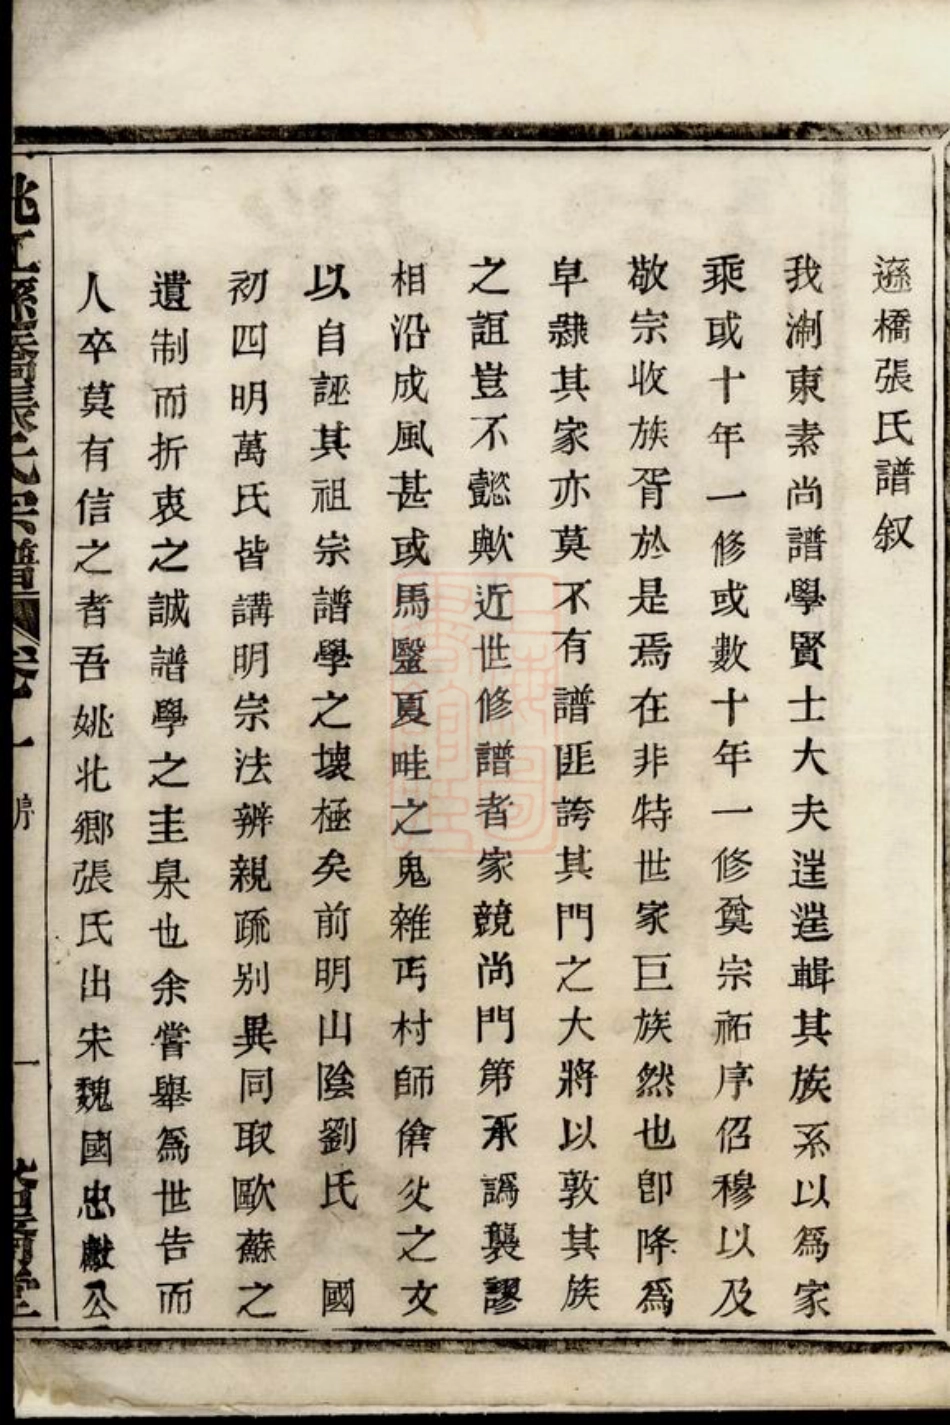 遜橋張氏譜叙
我淛東素尚譜學賢士大夫遑遑輯其族系以爲家
乘或十年一修或數十年一修奠宗祏序佋穆以及
敬宗收族胥於是焉在非特世家巨族然也卽降爲
皁隸其家亦莫不有譜匪誇其門之大將以敦其族
之誼豈不懿歟近世修譜者家競尚門第承譌襲謬
相沿成風甚或馬鑿夏畦之鬼雜丐村師傖父之文
以自誣其祖宗譜學之壞極矣前明山陰劉氏　國
初四明萬氏皆講明宗法辨親疏别異同取歐蘇之
遺制而折衷之誠譜學之圭臬也余嘗舉爲世告而
人卒莫有信之者吾姚北鄉張氏出宋魏國忠獻公
姚江遜橋張氏宗譜 卷一
一